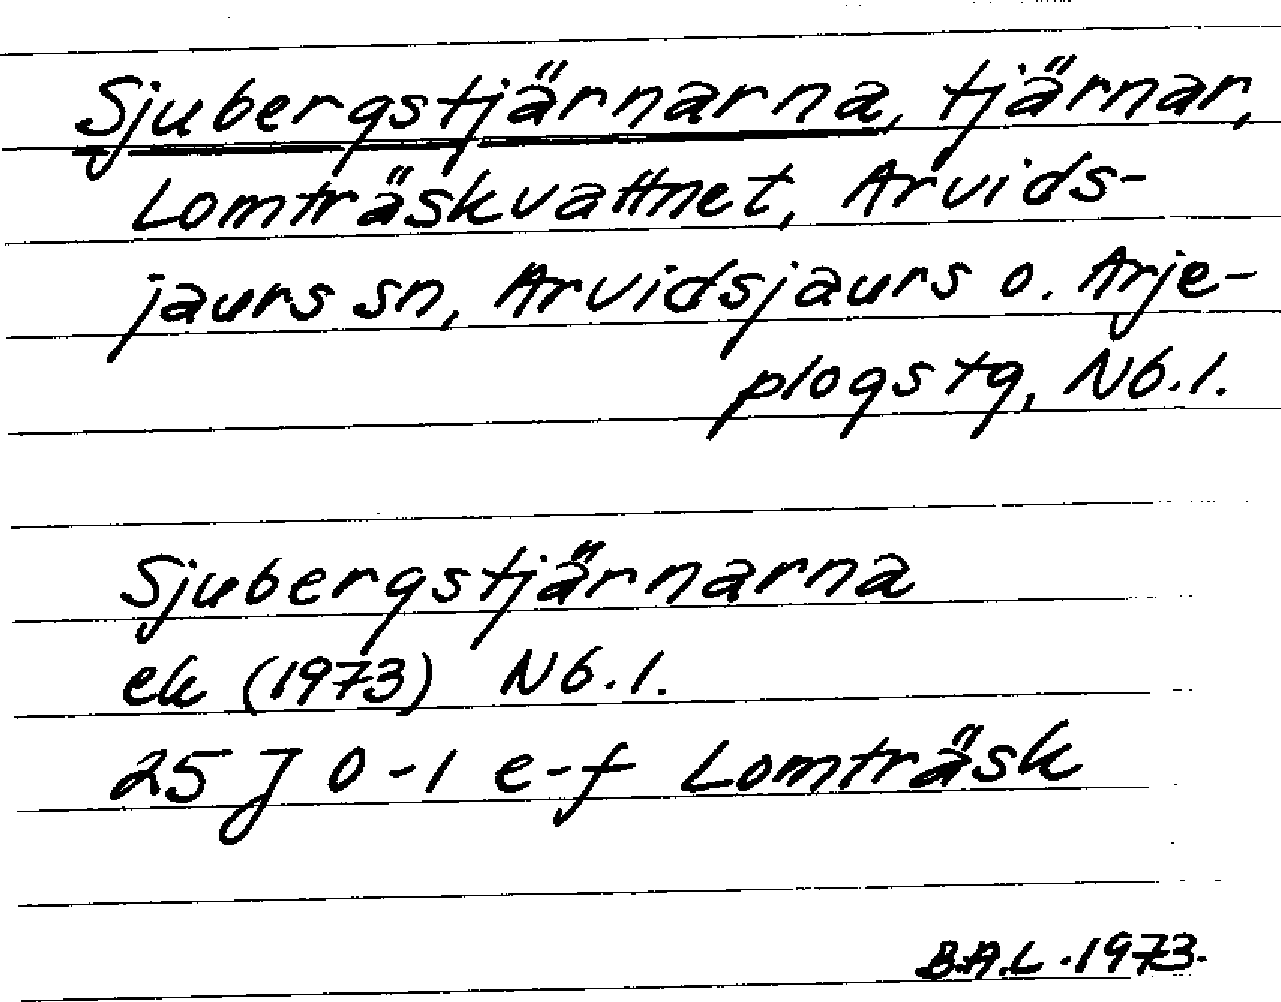 Sjubergstjärnarna, tjärnar,
Lomträskvattnet, Arvids-
jaurs sn, Arvidsjaurs o. Arje-
plogs tg, Nb.l.
Sjubergstjärnarna
ek (1973) Nb.l.
25 J 0-1 e-f Lomträsk
B.A.L. 1973.